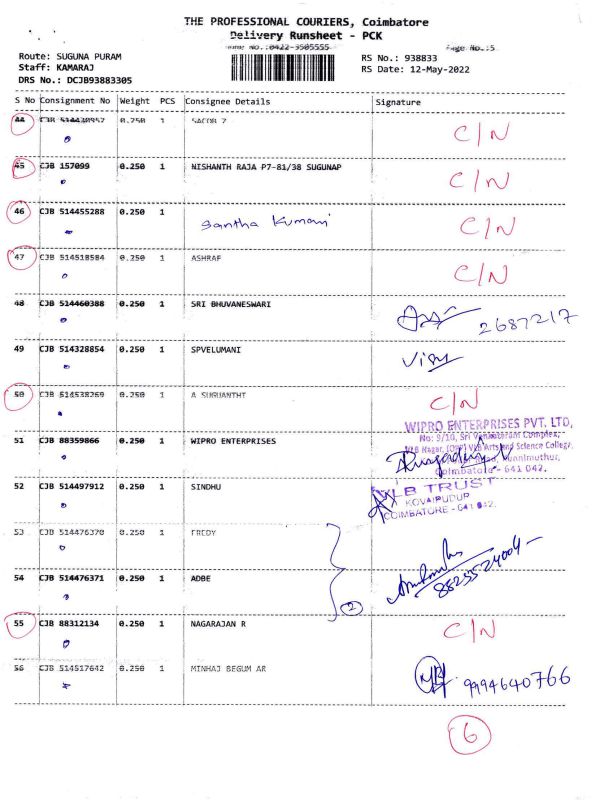 THE PROFESSIONAL COURIERS, Coimbatore
Delivery Runsheet - PCK
No.:0422-3505555
Page No.:5
Route: SUGUNA PURAM
RS No.: 938833
Staff: KAMARAJ
RS Date: 12-May-2022
DRS No.: DCJB93883305
S No Consignment No Weight PCS Consignee Details Signature
44 CJB 514430957 0.250 1 C/N
45 CJB 157099 0.250 1 NISHANTH RAJA P7-81/38 SUGUNAP C/N
46 CJB 514455288 0.250 1 Santha Kumari C/N
47 CJB 514518584 0.250 1 ASHRAF C/N
48 CJB 514460388 0.250 1 SRI BHUVANESWARI 2687217
49 CJB 514328854 0.250 1 SPVELUMANI
50 CJB 514538269 0.250 1 A SUGUANTHI C/N
WIPRO ENTERPRISES PVT. LTD,
No: 9/10, Sri Venkateram Complex,
51 CJB 88359866 0.250 1 WIPRO ENTERPRISES
VLB Nagar, (Opp) VLB Arts and Science College,
Coimbatore - 641 042.
52 CJB 514497912 0.250 1 SINDHU
VLB TRUST
KOVAIPUDUR
COIMBATORE - 641 042.
53 CJB 514476370 0.250 1 FREDY
54 CJB 514476371 0.250 1 ADBE
2
55 CJB 88312134 0.250 1 NAGARAJAN R C/N
56 CJB 514517642 0.250 1 MINHAJ BEGUM AR 9994640766
6